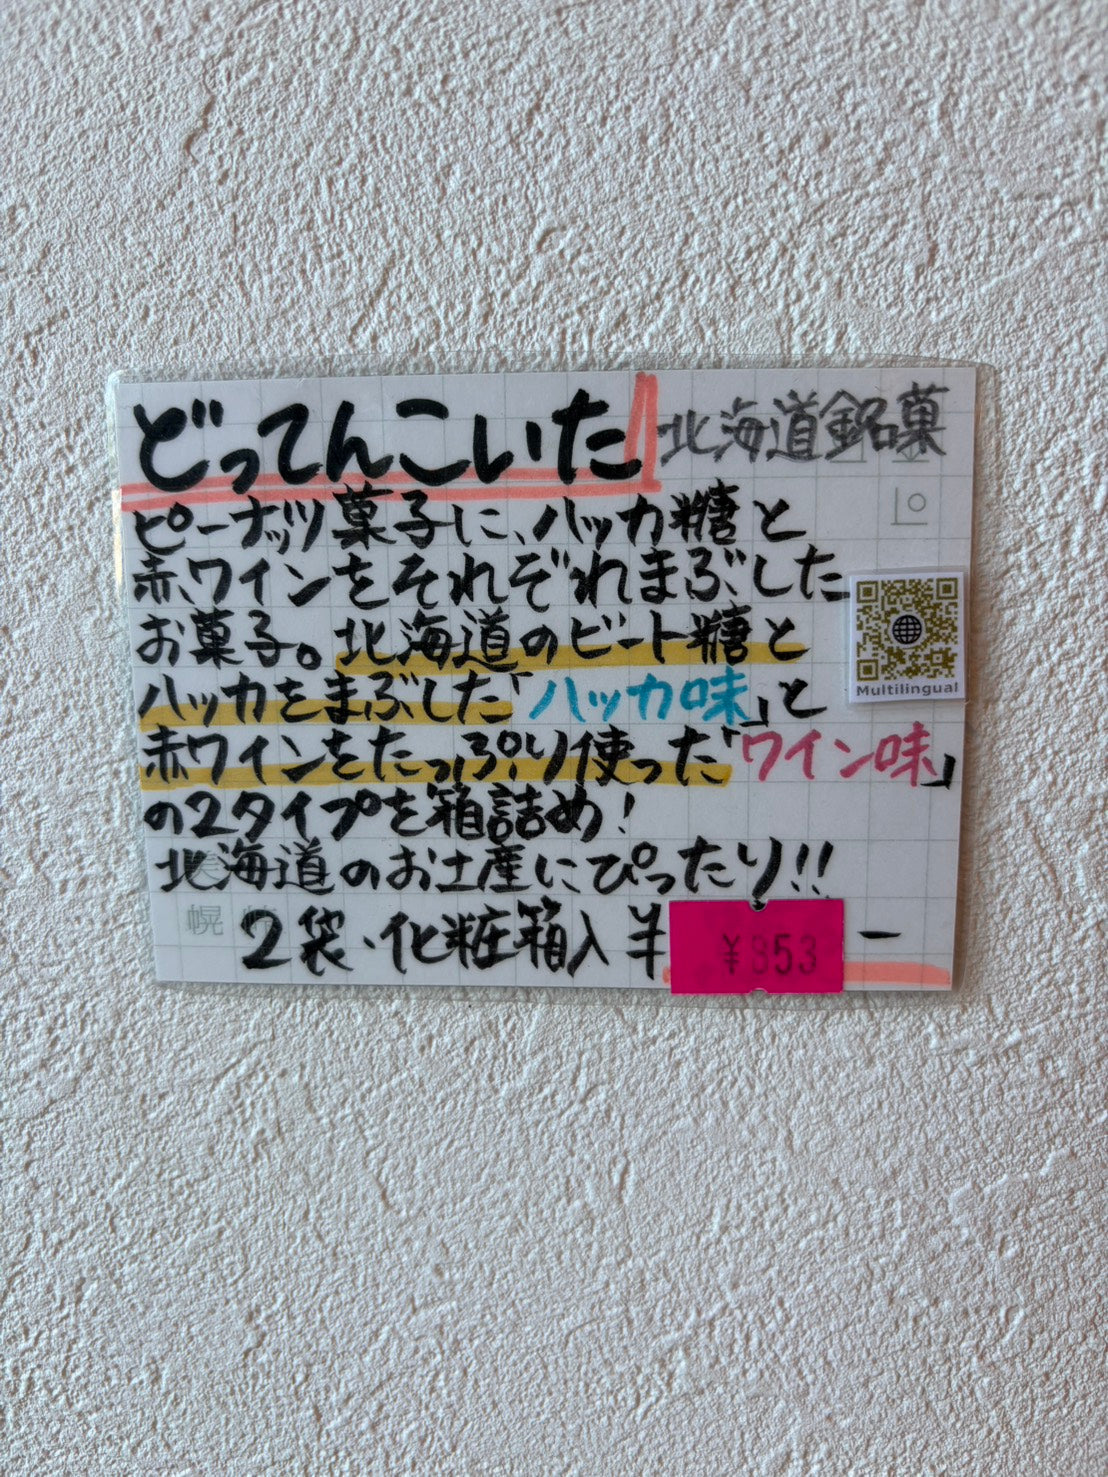 どってんこいた 北海道銘菓
ピーナッツ菓子に、ハッカ糖と
赤ワインをそれぞれまぶした
お菓子。北海道のビート糖と
ハッカをまぶした「ハッカ味」と
赤ワインをたっぷり使った「ワイン味」
の2タイプを箱詰め!
北海道のお土産にぴったり!!
2袋・化粧箱入 ¥ ¥853 ー
Multilingual